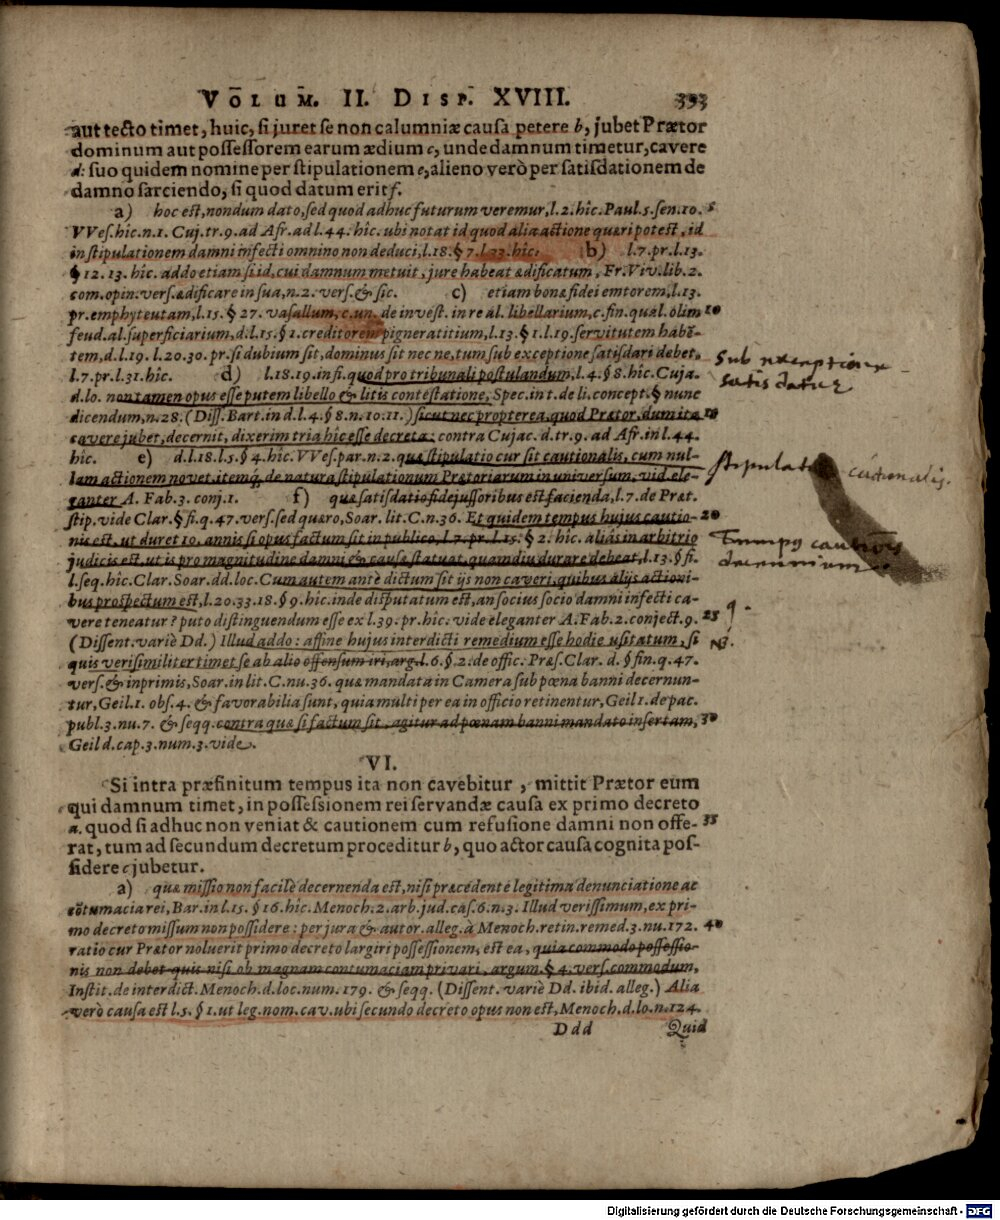 VOLUM. II. DISP. XVIII. 393
aut tecto timet, huic, si juret se non calumniæ causa petere b, jubet Prætor
dominum aut possessorem earum ædium c, unde damnum timetur, cavere
d: suo quidem nomine per stipulationem e, alieno verò per satisdationem de
damno sarciendo, si quod datum erit f.
a) hoc est, nondum dato, sed quod adhuc futurum veremur, l. 2. hîc. Paul. 5. sen. 10. 5
VVes. hic. n. 1. Cuj. tr. 9. ad Afr. ad l. 44. hîc. ubi notat id quod alia actione quæri potest, id
in stipulationem damni infecti omnino non deduci, l. 18. § 7. l. 33. hîc. b) l. 7. pr. l. 13.
§ 12. 13. hîc. addo etiam si id, cui damnum metuit, jure habeat ædificatum, Fr. Viv. lib. 2.
com. opin. vers. ædificare in sua, n. 2. vers. & sic. c) etiam bonæ fidei emtorem, l. 13.
pr. emphyteutam, l. 15. § 27. vasallum, c. un. de invest. in re al. libellarium, c. fin. qual. olim 10
feud. al. superficiarium, d. l. 15. § 1. creditorem pigneratitium, l. 13. § 1. l. 19. servitutem habẽ-
tem, d. l. 19. l. 20. 30. pr. si dubium sit, dominus sit nec ne, tum sub exceptione satisdari debet,
l. 7. pr. l. 31. hîc. d) l. 18. 19. in fi. quod pro tribunali postulandum, l. 4. § 8. hîc. Cuja.
d. lo. non tamen opus esse putem libello & litis contestatione, Spec. in t. de li. concept. § nunc
dicendum, n. 28. (Diss. Bart. in d. l. 4. § 8. n. 10. 11.) sicut nec propterea, quod Prætor, dum ita
cavere jubet, decernit, dixerim tria hîc esse decreta: contra Cujac. d. tr. 9. ad Afr. in l. 44.
hîc. e) d. l. 18. l. 5. § 4. hîc. VVes. par. n. 2. quæ stipulatio cur sit cautionalis, cum nul-
lam actionem novet, itemq́, de natura stipulationum Prætoriarum in universum, vid. ele-
ganter A. Fab. 3. conj. 1. f) quæ satisdatio fidejussoribus est facienda, l. 7. de Præt.
stip. vide Clar. § fi. q. 47. vers. sed quæro, Soar. lit. C. n. 36. Et quidem tempus hujus cautio- 20
nis est, ut duret 10. annis si opus factum sit in publico, l. 7. pr. l. 15. § 2. hîc. aliàs in arbitrio
judicis est, ut is pro magnitudine damni & causæ statuat, quamdiu durare debeat, l. 13. § fi.
l. seq. hîc. Clar. Soar. dd. loc. Cum autem antè dictum sit ijs non caveri, quibus alijs actioni-
bus prospectum est, l. 20. 33. 18. § 9. hîc. inde disputatum est, an socius socio damni infecti ca-
vere teneatur? puto distinguendum esse ex l. 39. pr. hîc. vide eleganter A. Fab. 2. conject. 9. 25
(Dissent. variè Dd.) Illud addo: affine hujus interdicti remedium esse hodie usitatum, si
quis verisimiliter timet se ab alio offensum iri, arg. l. 6. § 2. de offic. Præs. Clar. d. § fin. q. 47.
vers. & inprimis, Soar. in lit. C. nu. 36. quæ mandata in Camera sub pœna banni decernun-
tur, Geil. 1. obs. 4. & favorabilia sunt, quia multi per ea in officio retinentur, Geil. 1. de pac.
publ. 3. nu. 7. & seqq. contra quæ si factum sit, agitur ad pœnam banni mandato insertam, 30
Geil d. cap. 3. num. 3. vide.
VI.
Si intra præfinitum tempus ita non cavebitur, mittit Prætor eum
qui damnum timet, in possessionem rei servandæ causa ex primo decreto
a. quod si adhuc non veniat & cautionem cum refusione damni non offe- 35
rat, tum ad secundum decretum proceditur b, quo actor causa cognita pos-
sidere c jubetur.
a) quæ missio non facilè decernenda est, nisi præcedente legitima denunciatione ac
cõtumacia rei, Bar. in l. 15. § 16. hîc. Menoch. 2. arb. jud. cas. 6. n. 3. Illud verissimum, ex pri-
mo decreto missum non possidere: per jura & autor. alleg. à Menoch. retin. remed. 3. nu. 172. 40
ratio cur Prætor noluerit primo decreto largiri possessionem, est ea, quia commodo possessio-
nis non debet quis nisi ob magnam contumaciam privari, argum. § 4. vers. commodum,
Instit. de interdict. Menoch. d. loc. num. 179. & seqq. (Dissent. variè Dd. ibid. alleg.) Alia
verò causa est l. 5. § 1. ut leg. nom. cav. ubi secundo decreto opus non est, Menoch. d. lo. n. 124.
Ddd Quid
Sub exceptione
satis datur
stipulatio cautionalis.
Tempus cautionis
decennium
Digitalisierung gefördert durch die Deutsche Forschungsgemeinschaft - DFG